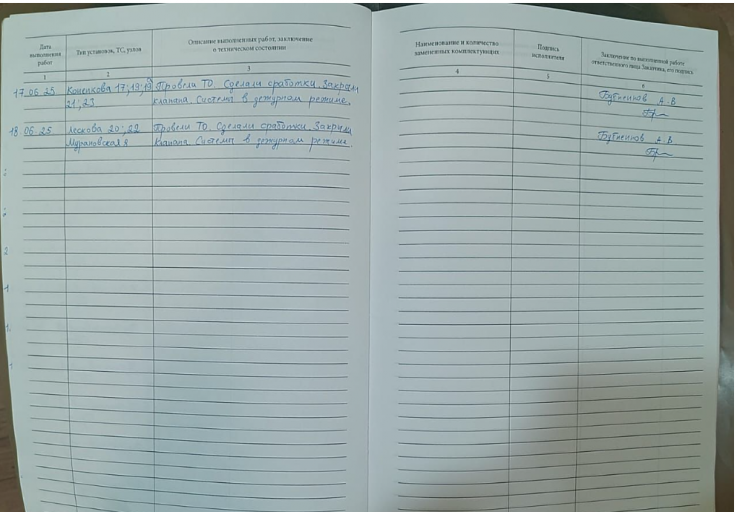 Дата выполнения работ
Тип установок, ТС, узлов
Описание выполненных работ, заключение о техническом состоянии
1
2
3
17 06 25 Коненкова 17; 19; Провели ТО. Сделали сработки. Закрыли
21; 23 клапана. Система в дежурном режиме.
18 06 25 Лескова 20; 22 Провели ТО. Сделали сработки. Закрыли
Мурановская 8 клапана. Система в дежурном режиме.
Наименование и количество замененных комплектующих
Подпись исполнителя
Заключение по выполненной работе ответственного лица Заказчика, его подпись
4
5
6
А. В
А. В